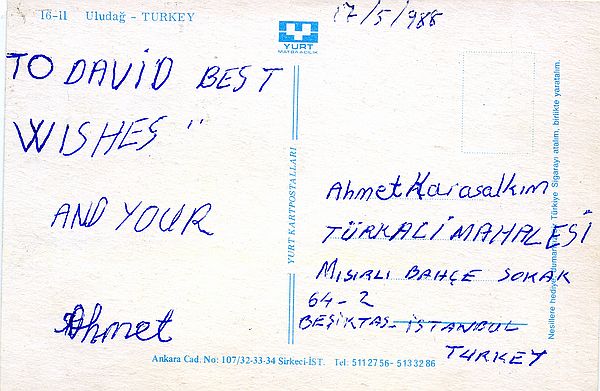 16-11 Uludağ - TURKEY
17/5/988
YURT
MATBAACILIK
TO DAVİD BEST
WISHES "
AND YOUR
Ahmet
YURT KARTPOSTALLARI
Ahmet Karasalkım
TÜRKALİ MAHALESİ
MISIRLI BAHÇE SOKAK
64-2
BEŞİKTAS - İSTANBUL
TURKEY
Nesillere hediye, dumansız Türkiye Sigarayı atalım, birlikte yaratalım.
Ankara Cad. No: 107/32-33-34 Sirkeci-İST. Tel: 511 27 56 - 513 32 86